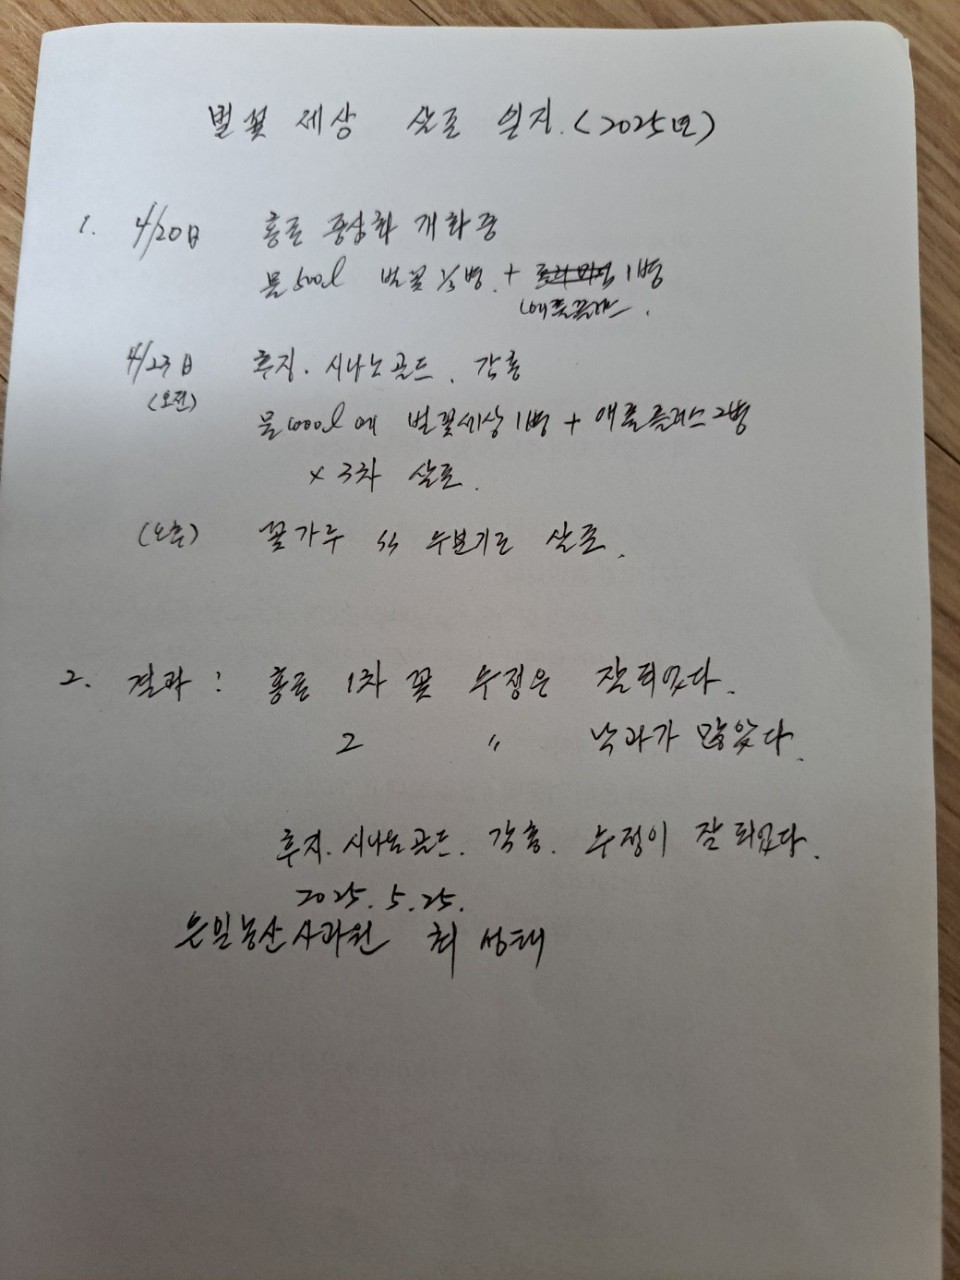 벌꽃 세상 살포 일지.(2025년)
1. 4/20日 홍로 중심화 개화중
물 500l 벌꽃 1/2병 + 1병
(애플플러스.
4/23日 후지. 시나노골드. 감홍
(오전)
물 1000l에 벌꽃세상 1병 + 애플플러스 2병
x 3차 살포.
(오후) 꽃가루 수분기로 살포.
2. 결과 : 홍로 1차 꽃 수정은 잘되었다.
2 〃 낙과가 많았다.
후지. 시나노골드. 감홍. 수정이 잘 되었다.
2025. 5. 25.
농산사과원 최성태